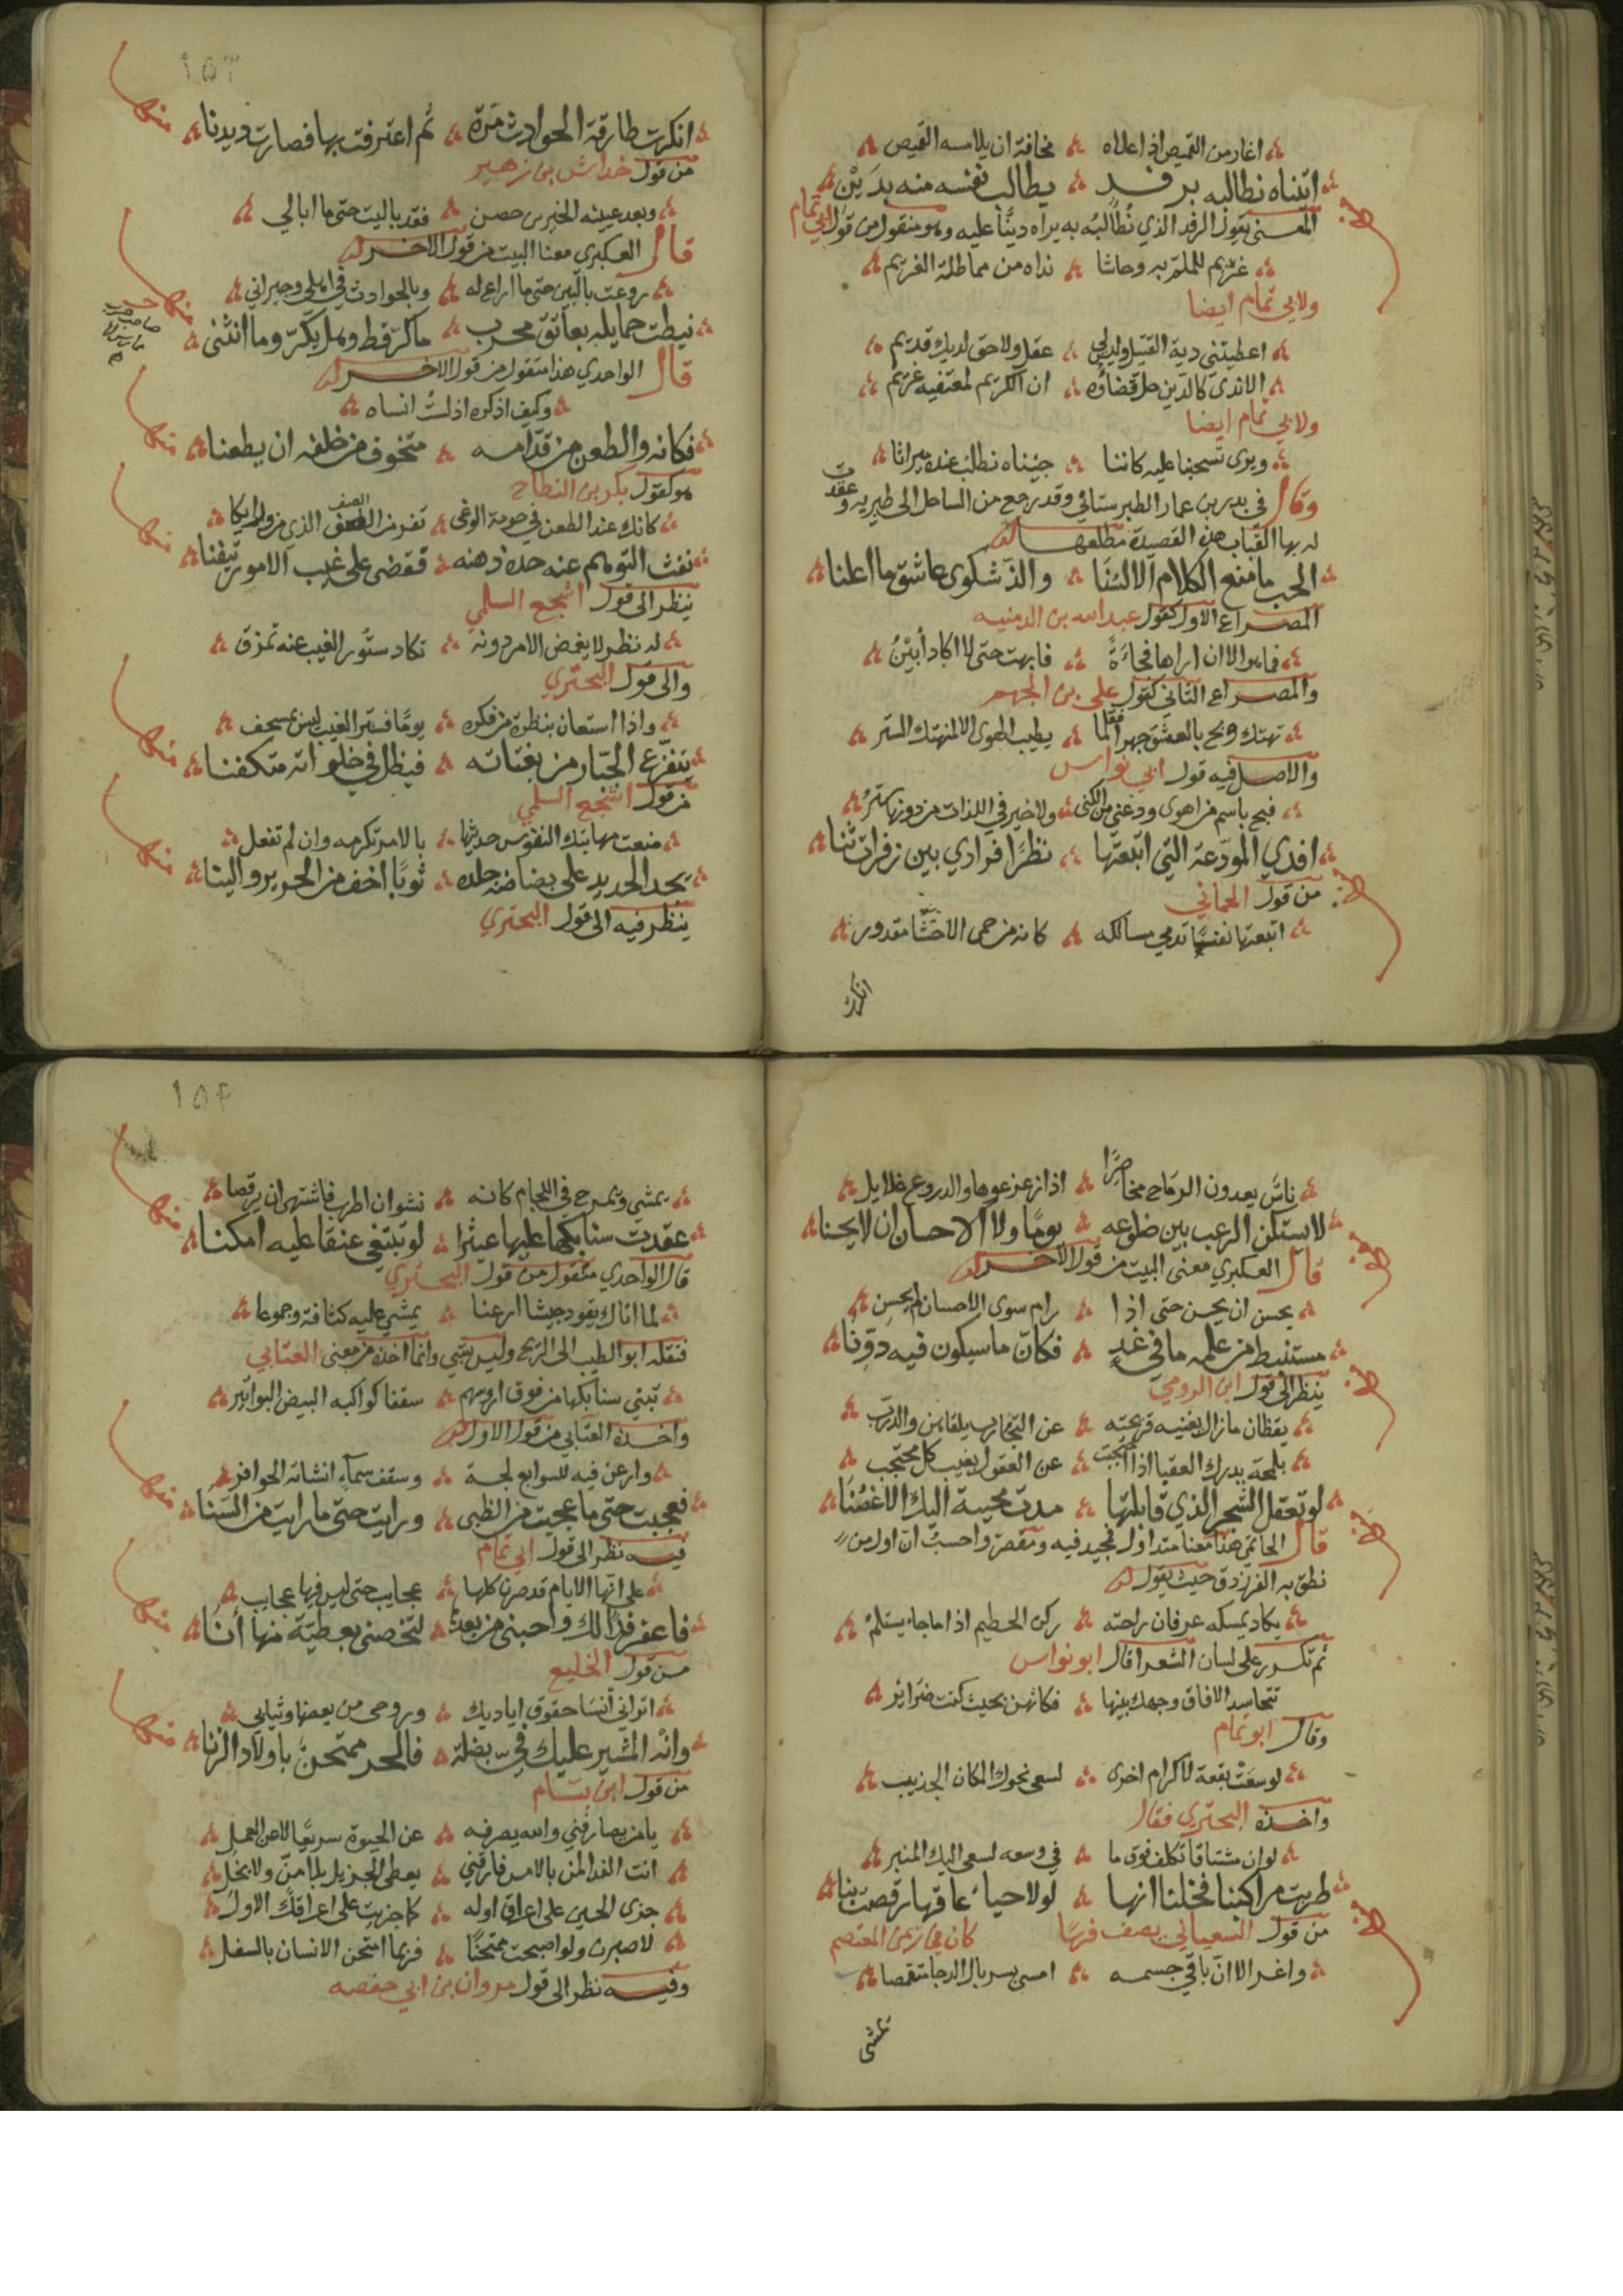 اغار من القميص اذا علاه ۞ مخافة ان يلامسه القميص
اتيناه نطالبه برفد ۞ يطالب نفسه منه بدين
المعنى يقول الرفد الذي نطالبه به يراه دينا عليه وهو منقول من قول ابي تمام
غريم للملم به وحاشا ۞ نداه من مماطلة الغريم
ولابي تمام ايضا
اعطيتني دية القتيل وليس لي ۞ عقل ولا حق لديك قديم
الا ندى كالدين حل قضاؤه ۞ ان الكريم لمعتفيه غريم
ولابي تمام ايضا
ويرى تسحبنا عليه كاننا ۞ جئناه نطلب عنده ميراثا
وقال في بدر بن عمار الطبرستاني وقد رجع من الساحل الى طبريه وعقدت
له بها القباب هذه القصيدة مطلعها
الحب ما منع الكلام الالسنا ۞ والذ شكوى عاشق ما اعلنا
المصراع الاول كقول عبد الله بن الدمنيه
فما هو الا ان اراها فجاءة ۞ فابهت حتى لا اكاد أبين
والمصراع الثاني كقول علي بن الجهم
تهتك وبح بالعشق جهرا فقلما ۞ يطيب الهوى الا لمنهتك الستر
والاصل فيه قول ابي نواس
فبح باسم من اهوى ودعني من الكنى ۞ ولا خير في اللذات من دونها ستر
افدي المودعة التي اتبعتها ۞ نظرا فرادي بين زفرات ثنا
من قول الحماني
اتبعتها نفسا تدمي مسالكه ۞ كانه من حمى الاحشا مقدور
انكرت
١٥٣
انكرت طارقة الحوادث مرة ۞ ثم اعترفت بها فصارت ديدنا
منها
من قول خداش بن زهير
وبعد عيينه الخير بن حصن ۞ فقد باليت حتى ما ابالي
قال العكبري معنا البيت من قول الاخر
روعت بالبين حتى ما اراع له ۞ وبالحوادث في اهلي وجيراني
نيطت حمايله بعاتق محرب ۞ ما كر قط وهل يكر وما انثنى
منها
قال الواحدي هذا منقول من قول الاخر
وكيف اذكره اذ لست انساه
فكانه والطعن من قدامه ۞ متخوف من خلفه ان يطعنا
منها
هو كقول بكر بن النطاح
كانك عند الطعن في حومة الوغى ۞ تفر من الصف الذي من ورايكا
نفث التوهم عنه حدة ذهنه ۞ فقضى على غيب الامور تيقنا
منها
ينظر الى قول اشجع السلمي
له نظر لا يغمض الامر دونه ۞ تكاد ستور الغيب عنه تمزق
والى قول البحتري
واذا استعان بنظرة من فكره ۞ يوما فستر الغيب ليس بمسجف
يتفزع الجبار من بغتاته ۞ فيظل في خلواته متكفنا
منها
من قول اشجع السلمي
منعت مهابتك النفوس حديثها ۞ بالامر تكرهه وان لم تفعل
يجد الحديد على بضاضة جلده ۞ ثوبا اخف من الحرير والينا
منها
ينظر فيه الى قول البحتري
ناس يعدون الرماح مخاصرا ۞ اذا زعزعوها والدروع غلايل
لا يستكن الرعب بين ضلوعه ۞ يوما ولا الاحسان ان لا يحسنا
قال العكبري معنى البيت من قول الاخر
يحسن ان يحسن حتى اذا ۞ رام سوى الاحسان لم يحسن
مستنبط من علمه ما في غد ۞ فكان ما سيكون فيه دونا
ينظر الى قول ابن الرومي
يقظان ما زال يغنيه قريحته ۞ عن التجارب يلقاهن والدرب
بلمحة يدرك العقبا اذا احتجبت ۞ عن العقول بغيب كل محتجب
لو تعقل الشجر الذي قابلتها ۞ مدت محيية اليك الاغصنا
قال الحاتمي هذا معنا متداول فمجيد فيه ومقصر واحسب ان اول من
نطق به الفرزدق حيث يقول
يكاد يمسكه عرفان راحته ۞ ركن الحطيم اذا ما جاء يستلم
ثم تكرر على لسان الشعرا قال ابو نواس
تتحاسد الافاق وجهك بينها ۞ فكانهن بحيث كنت ضرائر
وقال ابو تمام
لو سعت بقعة لاكرام اخرى ۞ لسعى نحوك المكان الجديب
واخذه البحتري فقال
لو ان مشتاقا تكلف فوق ما ۞ في وسعه لسعى اليك المنبر
طربت مراكبنا فخلنا انها ۞ لولا حياء عاقها رقصت بنا
من قول السعيباني يصف فرسا كان في زمن المعتصم
واغر الا ان باقي جسمه ۞ امسى بسربال الدجا متقمصا
يمشي
١٥٤
يمشي ويمرح في اللجام كانه ۞ نشوان اطرب فاشتهى ان يرقصا
عقدت سنابكها عليها عثيرا ۞ لو تبتغي عنقا عليه امكنا
منها
قال الواحدي منقول من قول البحتري
لما اتاك يقود جيشا ارعنا ۞ يمشي عليه كثافة وجموعا
فنقله ابو الطيب الى الريح وليس بشي وانما اخذه من معنى العتابي
تبني سنابكها من فوق اروسهم ۞ سقفا كواكبه البيض البواتير
واخذه العتابي من قول الاول
وارعن فيه للسوابغ لجة ۞ وسقف سماء انشاته الحوافر
فعجبت حتى ما عجبت من الظبى ۞ ورايت حتى ما رايت من السنا
منها
فيه نظر الى قول ابي تمام
على انها الايام قد صرن كلها ۞ عجايب حتى ليس فيها عجايب
فاغفر فدا لك واحبني من بعدها ۞ لتخصني بعطية منها أنا
منها
من قول الخليع
اتراني أنسا حقوق اياديك ۞ وروحي من بعضها وثيابي
وانه المشير عليك في بضلة ۞ فالحر ممتحن باولاد الزنا
منها
من قول ابن بسام
يا من يصارفني والله يصرفه ۞ عن الحيوة سريعا لا عن العمل
انت الفدا لمن بالامس فارقني ۞ يعطى الجزيل بلا من ولا بخل
جزى الحسين على اعراق اوله ۞ كما جزيت على اعراقك الاول
لاصبرن ولو اصبحت ممتحنا ۞ فربما امتحن الانسان بالسفل
وفيه نظر الى قول مروان بن ابي حفصه